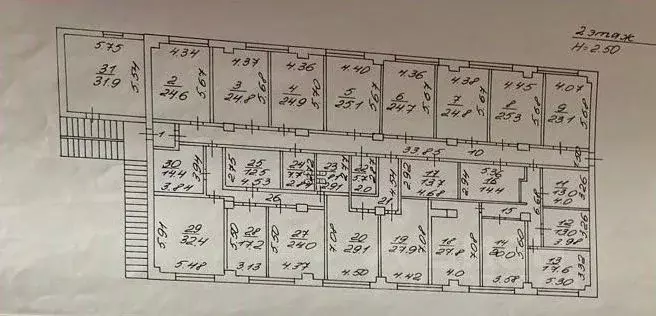 2 этаж
H=2.50
5.75
31
31.9
5.54
4.34
2
24.6
5.67
4.37
3
24.8
5.68
4.36
4
24.9
5.70
4.40
5
25.1
5.67
4.36
6
24.7
5.67
4.38
7
24.8
5.67
4.45
8
25.3
5.68
4.07
9
23.1
5.68
1
33.85
10
1.50
30
14.4
3.94
3.84
2.75
25
12.5
4.53
24
23
2.91
2.77
2.27
2.0
4.54
21
2.92
17
13.7
4.68
2.94
16
14.4
6.68
11
13.0
4.0
3.26
12
13.0
3.98
3.26
15
26
5.91
29
32.4
5.48
5.50
28
17.2
3.13
5.50
27
24.0
4.37
7.08
20
29.1
4.50
19
27.9
7.08
4.42
18
27.8
7.08
4.0
14
30.0
5.60
5.58
13
17.6
5.30
3.32